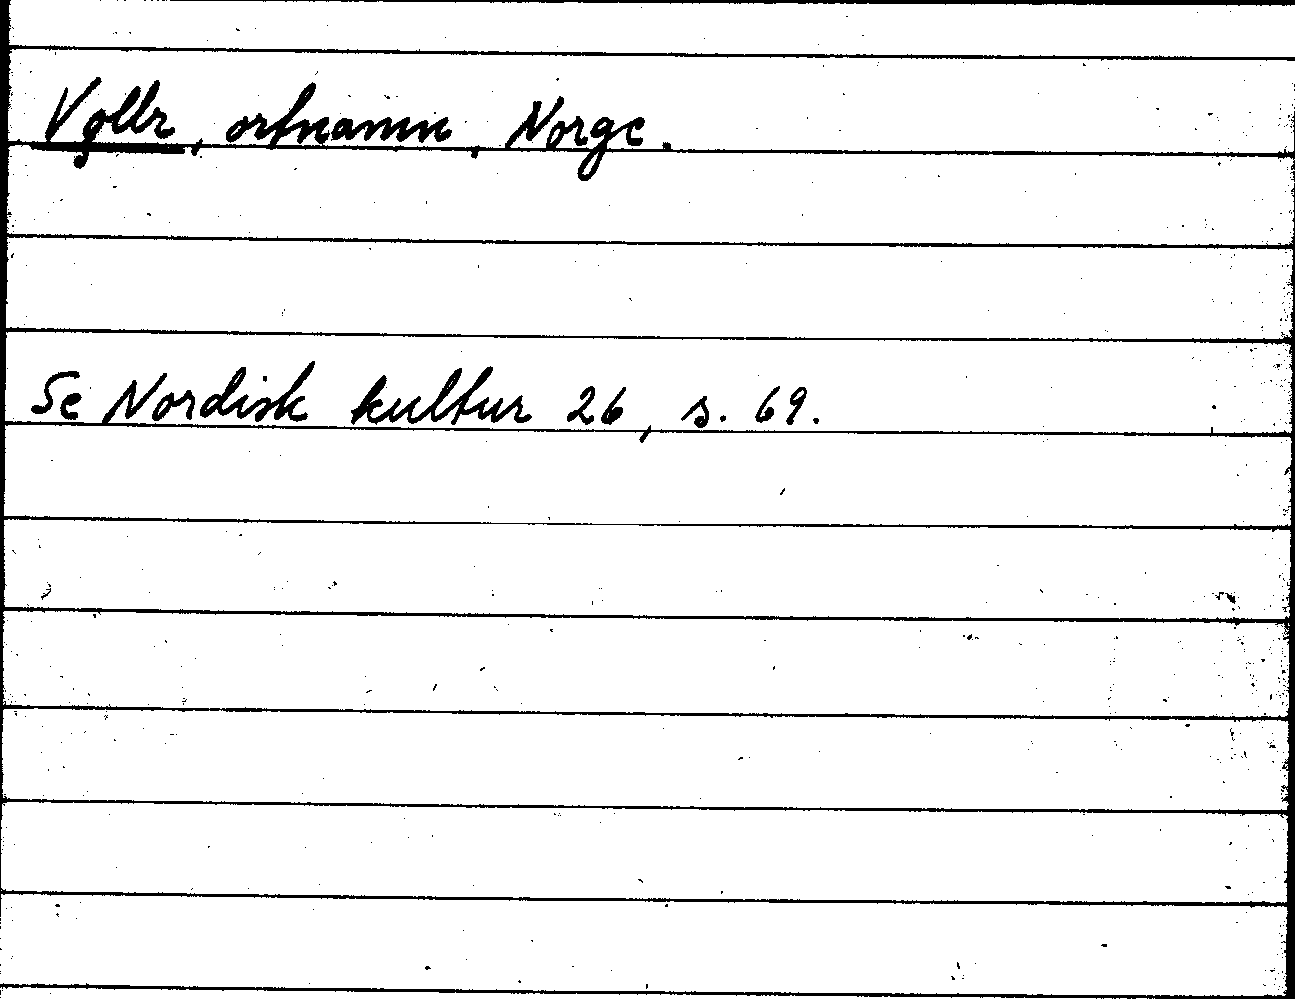 Vǫllr, ortnamn, Norge.
Se Nordisk kultur 26, s. 69.